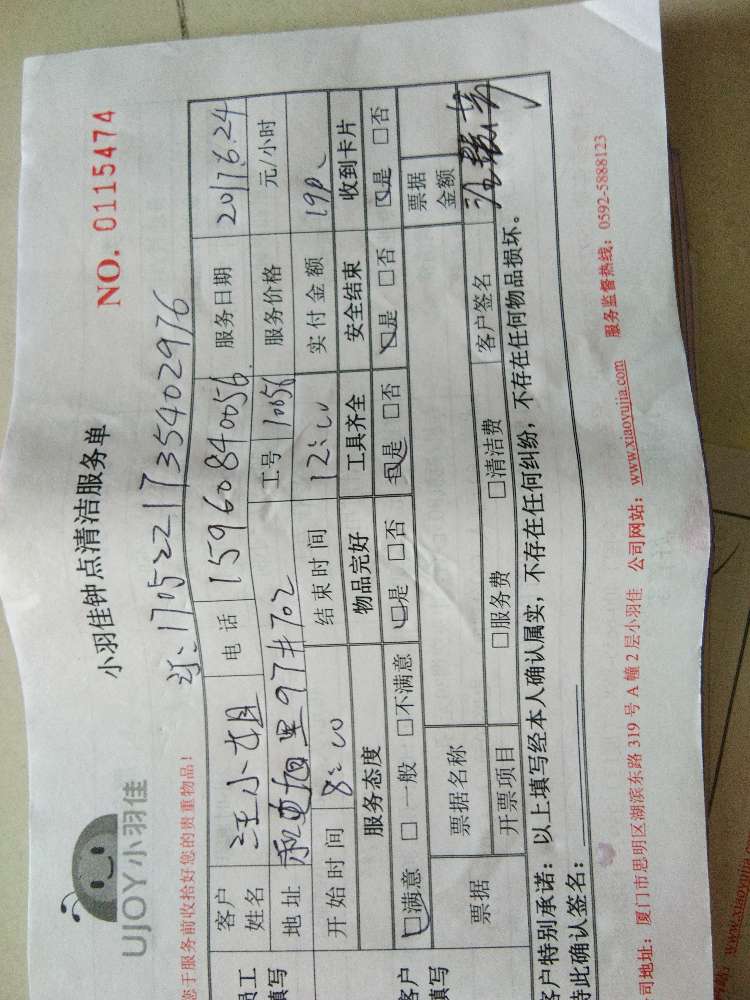 UJOY小羽佳
小羽佳钟点清洁服务单
NO. 0115474
1705221735402976
您于服务前收拾好您的贵重物品!
员工
填写
客户
姓名
汪小姐
电话
15960840056
服务日期
2017.6.24
地址
97#702
工号
10056
服务价格
元/小时
开始时间
8:00
结束时间
12:00
实付金额
198
服务态度
物品完好
工具齐全
安全结束
收到卡片
客户
填写
☑满意 □ 一般 □不满意
☑是 □否
☑是 □否
☑是 □否
☑是 □否
票据
票据名称
票据
金额
开票项目
□服务费 □清洁费
客户签名
客户特别承诺: 以上填写经本人确认属实,不存在任何纠纷,不存在任何物品损坏。
特此确认签名:
司地址: 厦门市思明区湖滨东路 319 号 A 幢 2 层小羽佳 公司网站: www.xiaoyujia.com 服务监督热线: 0592-5888123